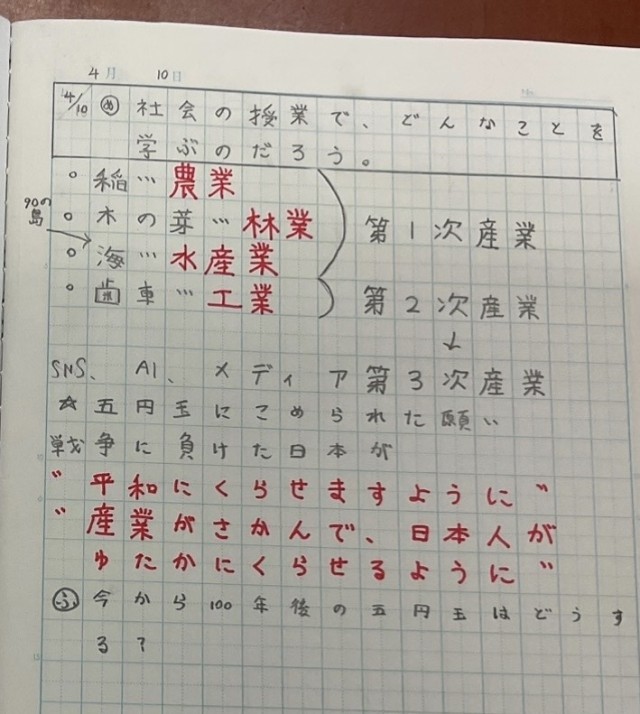 4月 10日
4/10 め 社会の授業で、どんなことを
学ぶのだろう。
○ 稲… 農業
○ 木の芽… 林業 第1次産業
90の島
○ 海… 水産業
○ 歯車… 工業 第2次産業
↓
SNS、AI、メディア 第3次産業
☆ 五円玉にこめられた願い
戦争に負けた日本が
〝平和にくらせますように〟
〝産業がさかんで、日本人が
ゆたかにくらせるように〟
ふ 今から100年後の五円玉はどうす
る?